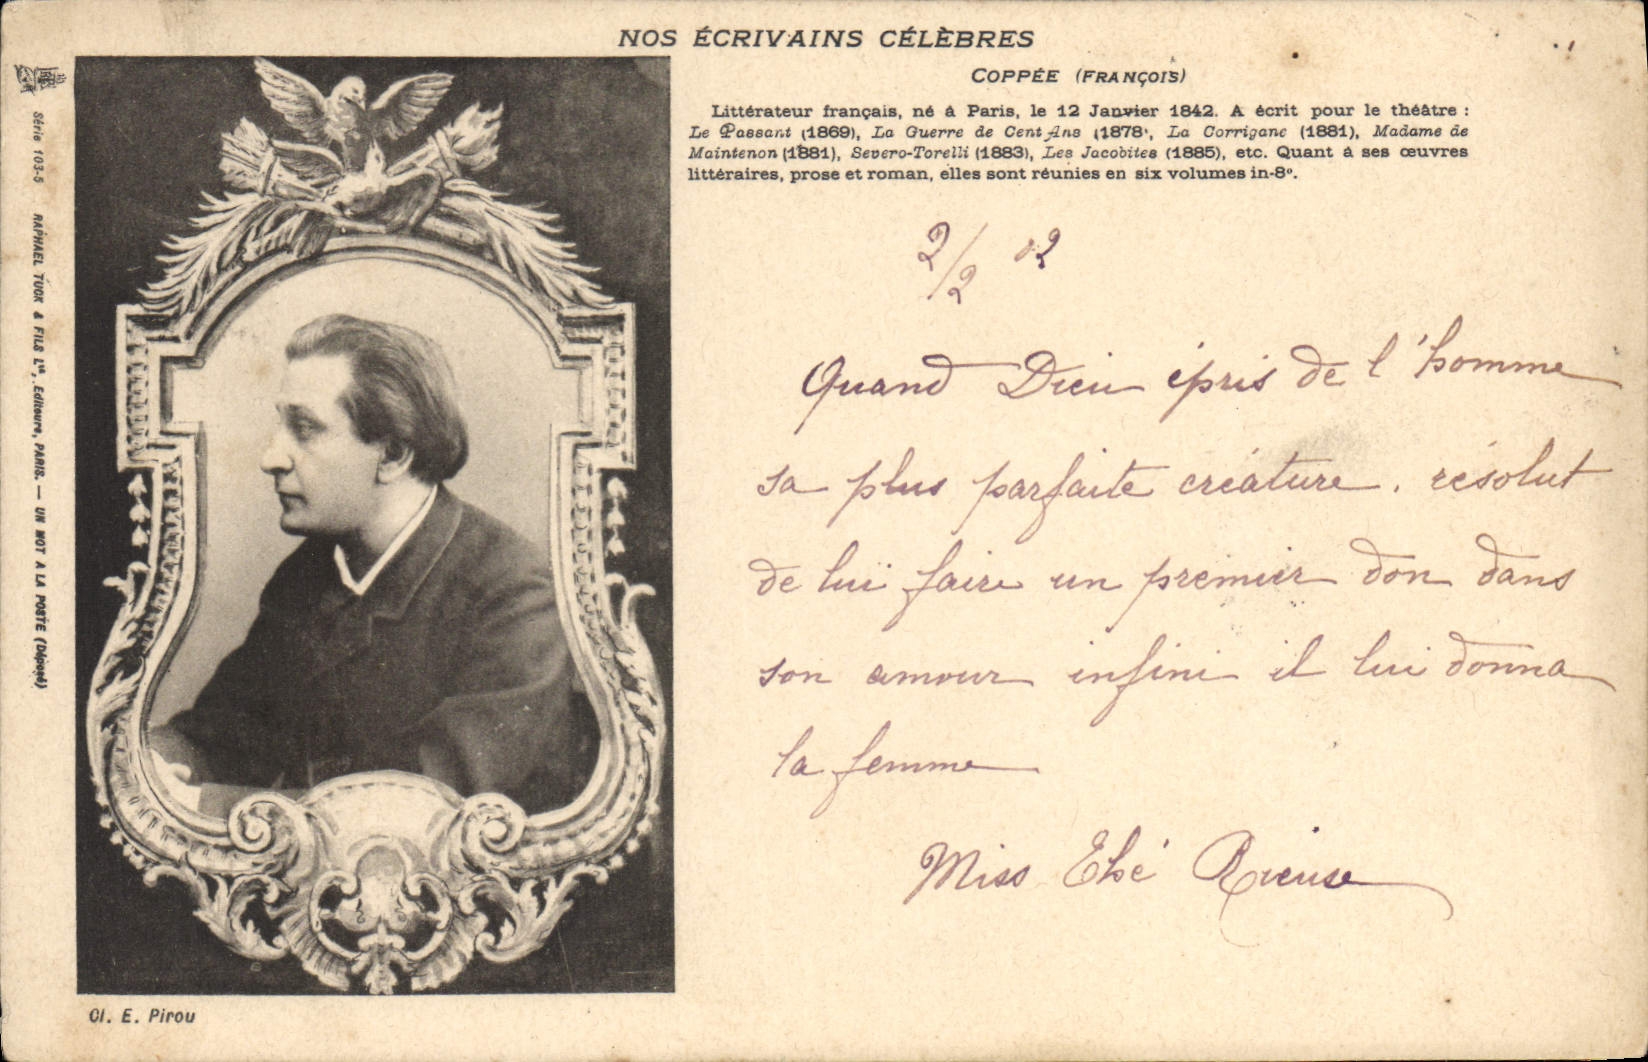 NOS ÉCRIVAINS CÉLÈBRES
COPPÉE (FRANÇOIS)
Littérateur français, né à Paris, le 12 Janvier 1842. A écrit pour le théâtre :
Le Passant (1869), La Guerre de Cent Ans (1878), La Corrigane (1881), Madame de
Maintenon (1881), Severo-Torelli (1883), Les Jacobites (1885), etc. Quant à ses œuvres
littéraires, prose et roman, elles sont réunies en six volumes in-8º.
2/2 02
Quand Dieu épris de l'homme
sa plus parfaite créature. résolut
de lui faire un premier don dans
son amour infini il lui donna
la femme
Miss
Cl. E. Pirou
Série 103-5 RAPHAEL TUCK & FILS Lᵗᵈ, Editeurs, PARIS. — UN MOT A LA POSTE (Déposé)